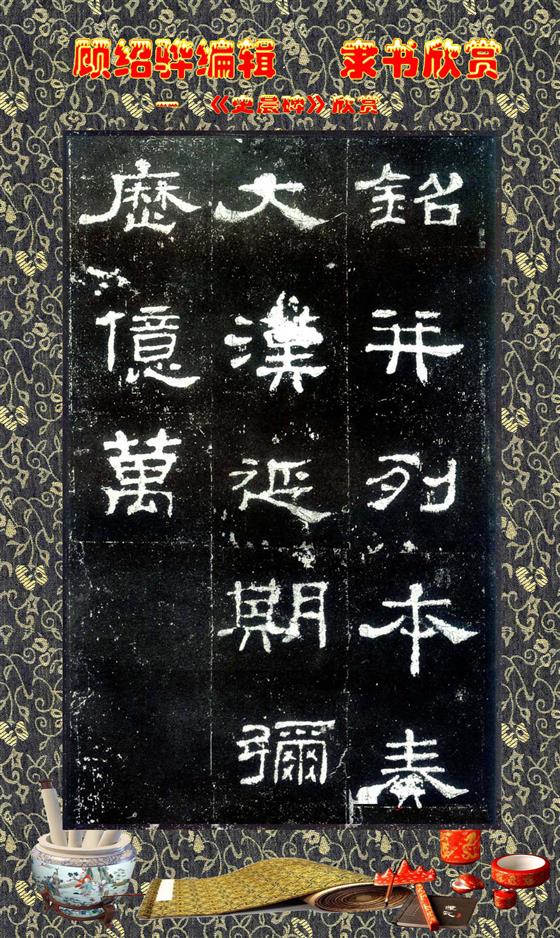 顾绍骅编辑 隶书欣赏
一 《史晨碑》欣赏
銘并列本奏
大漢延期彌
歷億萬